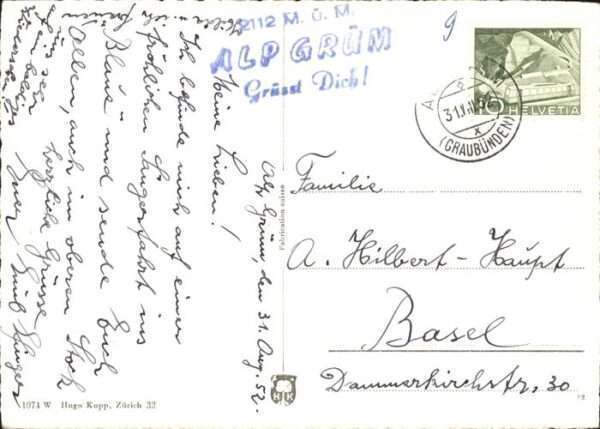 2112 M. ü. M.
ALP GRÜM
Grüsst Dich!
9
HELVETIA
31.VIII.52
(GRAUBÜNDEN)
Alp Grüm, den 31. Aug. 52.
Meine Lieben!
Ich befinde mich auf einer
fröhlichen Sängerfahrt ins
Blaue und sende Euch
allen, auch im oberen Stock
herzliche Grüsse
Euer Emil
Familie
A. Hilbert-Haupt
Basel
Dammerkirchstr. 30
1074 W Hugo Kopp, Zürich 32
HK